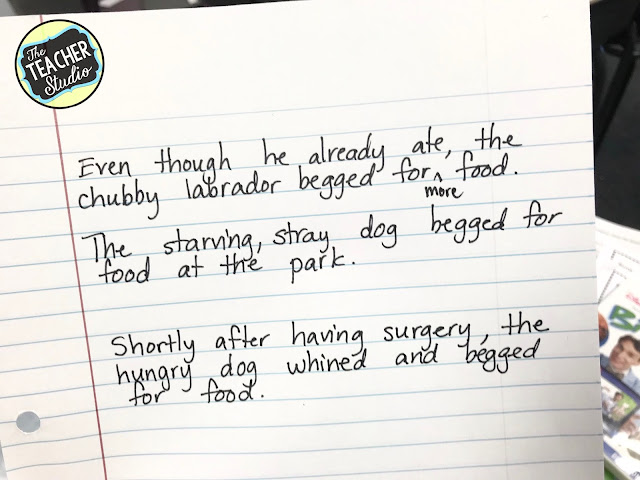 The
TEACHER
Studio
Even though he already ate, the
chubby labrador begged for ^ food.
more
The starving, stray dog begged for
food at the park.
Shortly after having surgery, the
hungry dog whined and begged
for food.